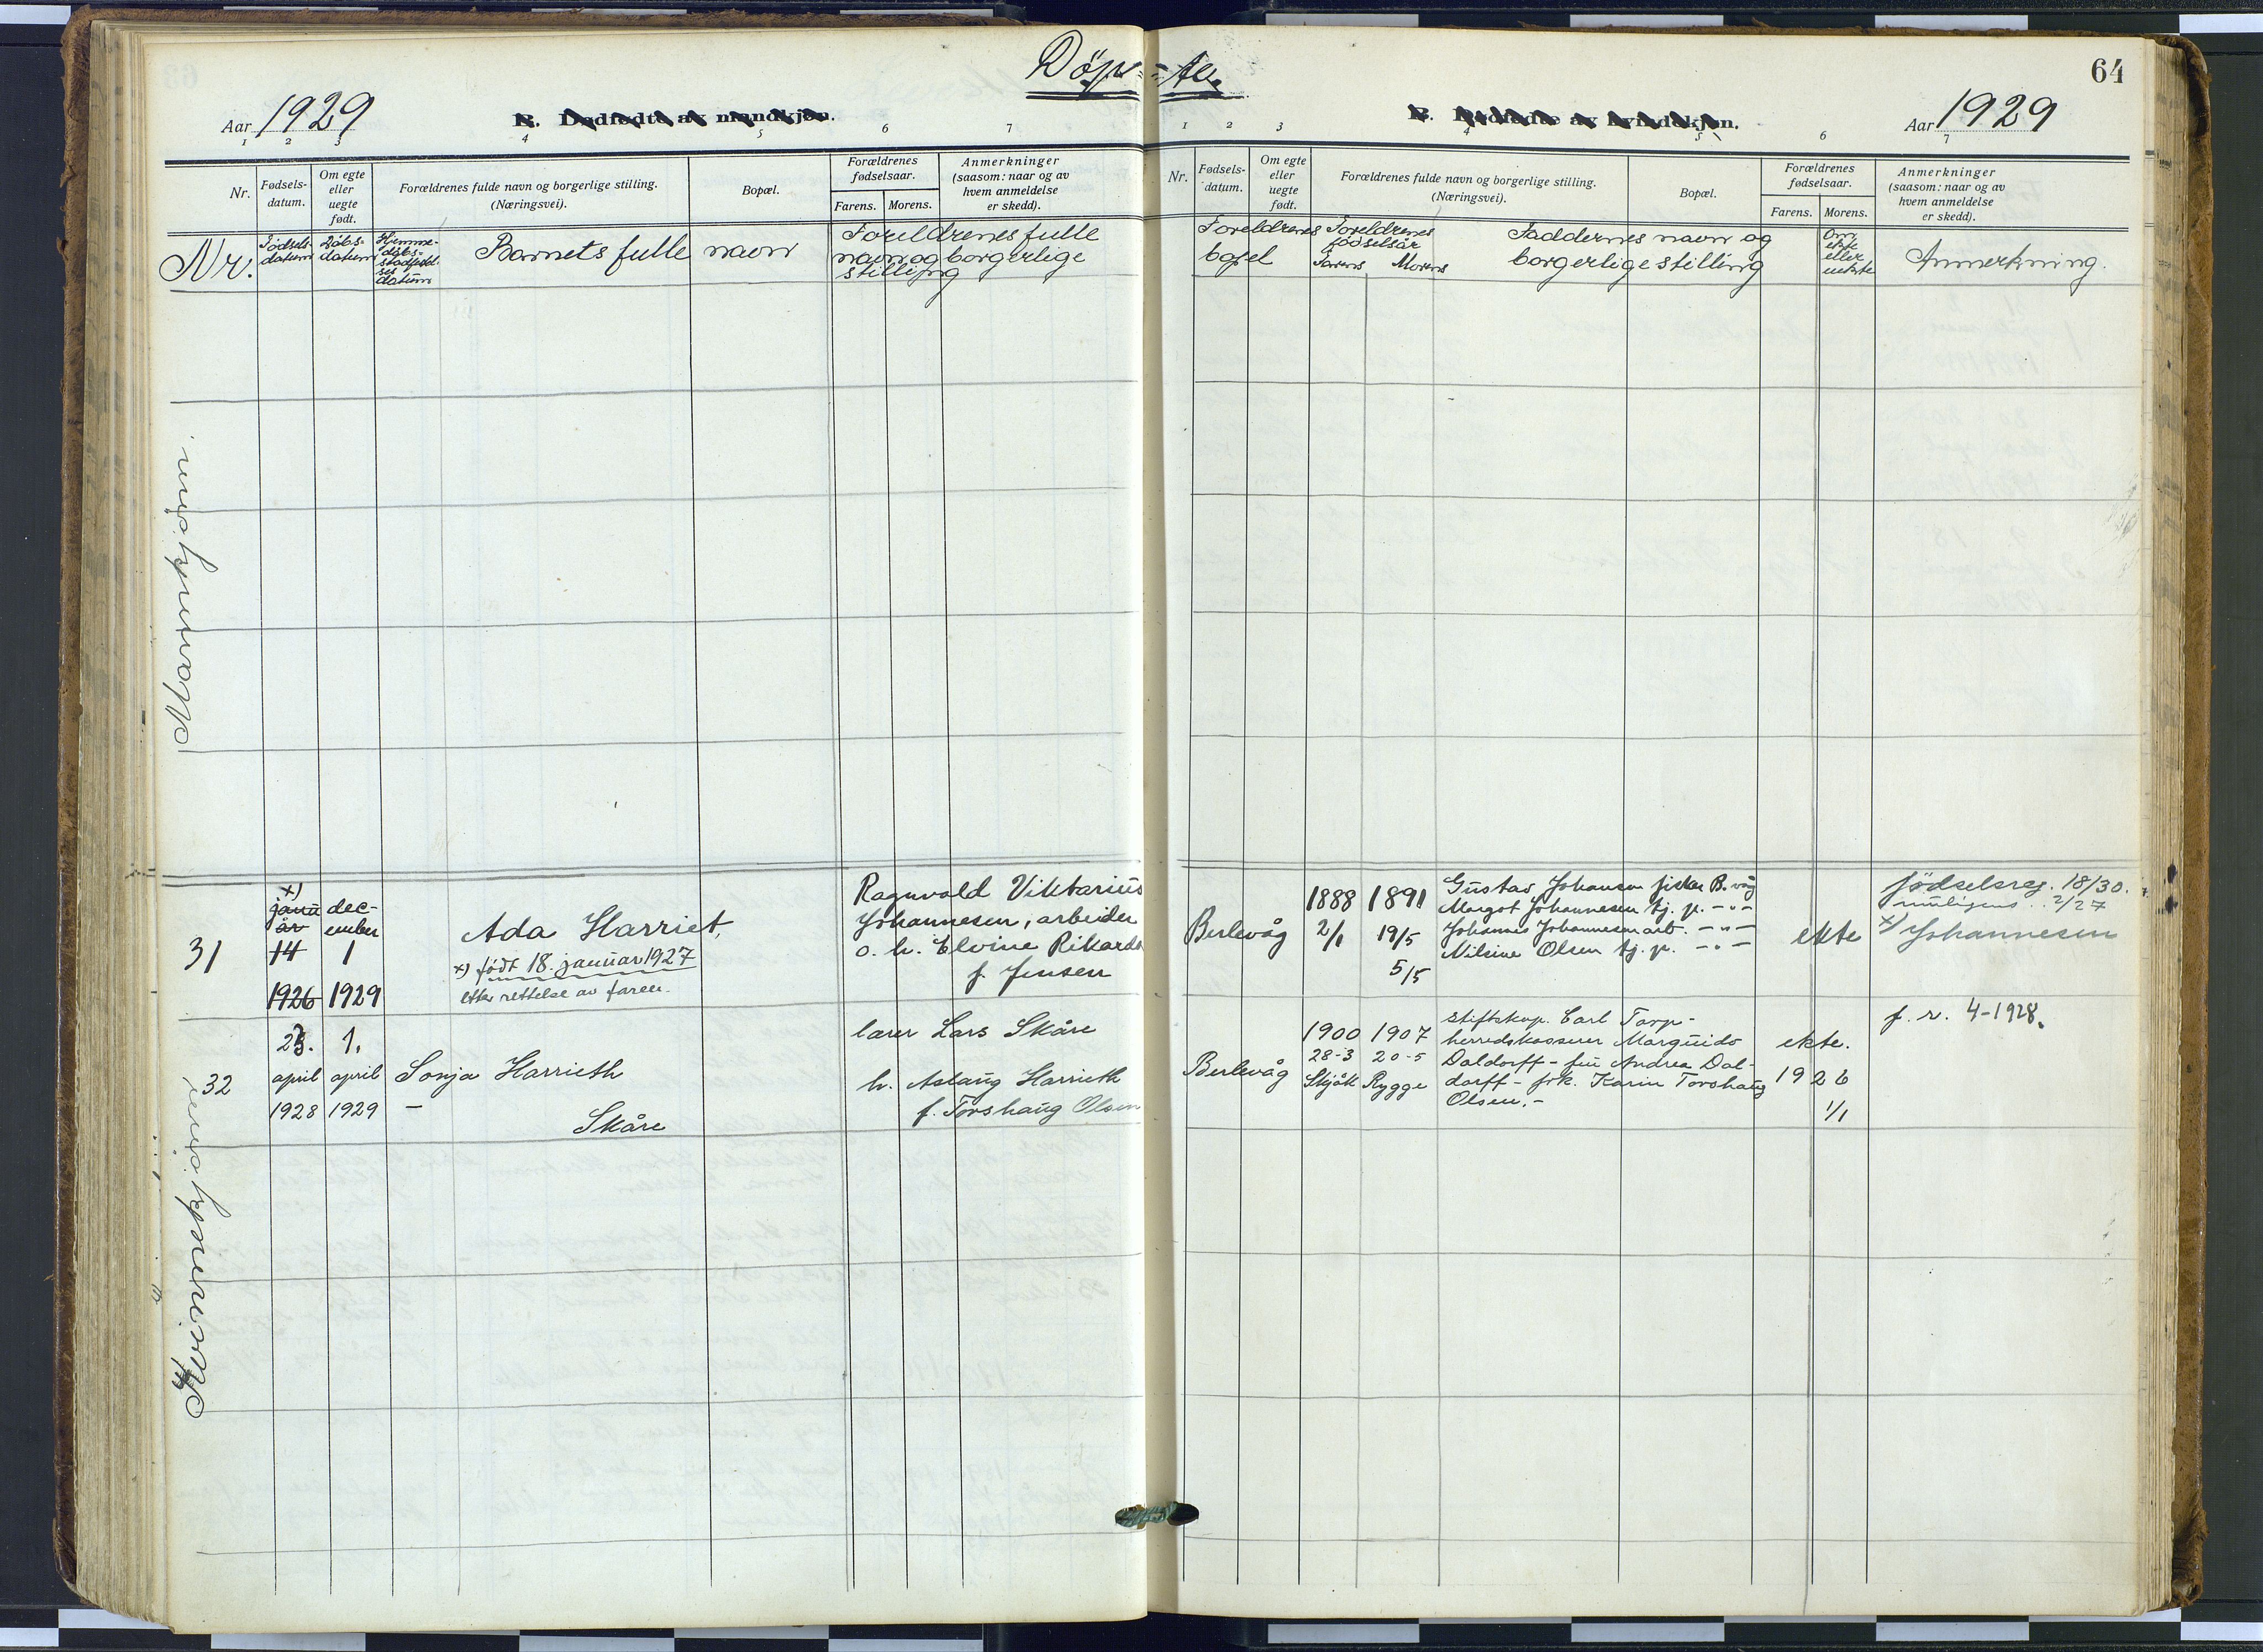 Döp-te.
64
Aar 1929
B. Dødfødte av mandkjøn.
B. Dødfødte av kvindekjøn.
Aar 1929
1 2 3 4 5 6 7
1 2 3 4 5 6 7
Nr.
Fødsels-
datum.
Om egte
eller
uegte
født.
Forældrenes fulde navn og borgerlige stilling.
(Næringsvei).
Bopæl.
Forældrenes
fødselsaar.
Farens. Morens.
Anmerkninger
(saasom: naar og av
hvem anmeldelse
er skedd).
Nr.
Fødsels-
datum.
Om egte
eller
uegte
født.
Forældrenes fulde navn og borgerlige stilling.
(Næringsvei).
Bopæl.
Forældrenes
fødselsaar.
Farens. Morens.
Anmerkninger
(saasom: naar og av
hvem anmeldelse
er skedd).
Nr.
Födsels-
datum
Dåbs-
datum
Hjemme-
dåbs-
stadfestel-
ses
datum
Barnets fulle navn
Foreldrenes fulle
navn og borgerlige
stilling
Foreldrenes
bopel
Foreldrenes
födselsår
Farens Morens
Faddernes navn og
borgerlige stilling
Om
ekte
eller
uekte
Anmerkning.
Mannkjønn.
31
x)
janu
ar
14
1926
dec-
ember
1
1929
Ada Harriet,
x) født 18. januar 1927
etter rettelse av faren.
Ragnvald Viktarius
Johannesen, arbeider
o. h. Elvine Rikarda
f. Jensen
Berlevåg
1888 1891
2/1 19/5
5/5
Gustav Johansen fisker B.våg
Margot Johannesen tj. p. -"-
Johannes Johannesen arb. -"-
Nilsine Olsen tj. p. -"-
ekte
födselsreg. 18/30.
muligens 2/27
x) Johannesen
32
23.
april
1928
1.
april
1929
Sonja Harrieth
-
Skåre
lærer Lars Skåre
h. Aslaug Harrieth
f. Torshaug Olsen
Berlevåg
1900 1907
28-3 20-5
Skjåk Rygge
stiftskap. Carl Tarp-
herredskasserer Marquido
Daldorff - fru Andrea Dal-
dorff - frk. Karin Torshaug
Olsen.-
ekte.
1926
1/1
f. r. 4-1928.
Kvinnekjønn